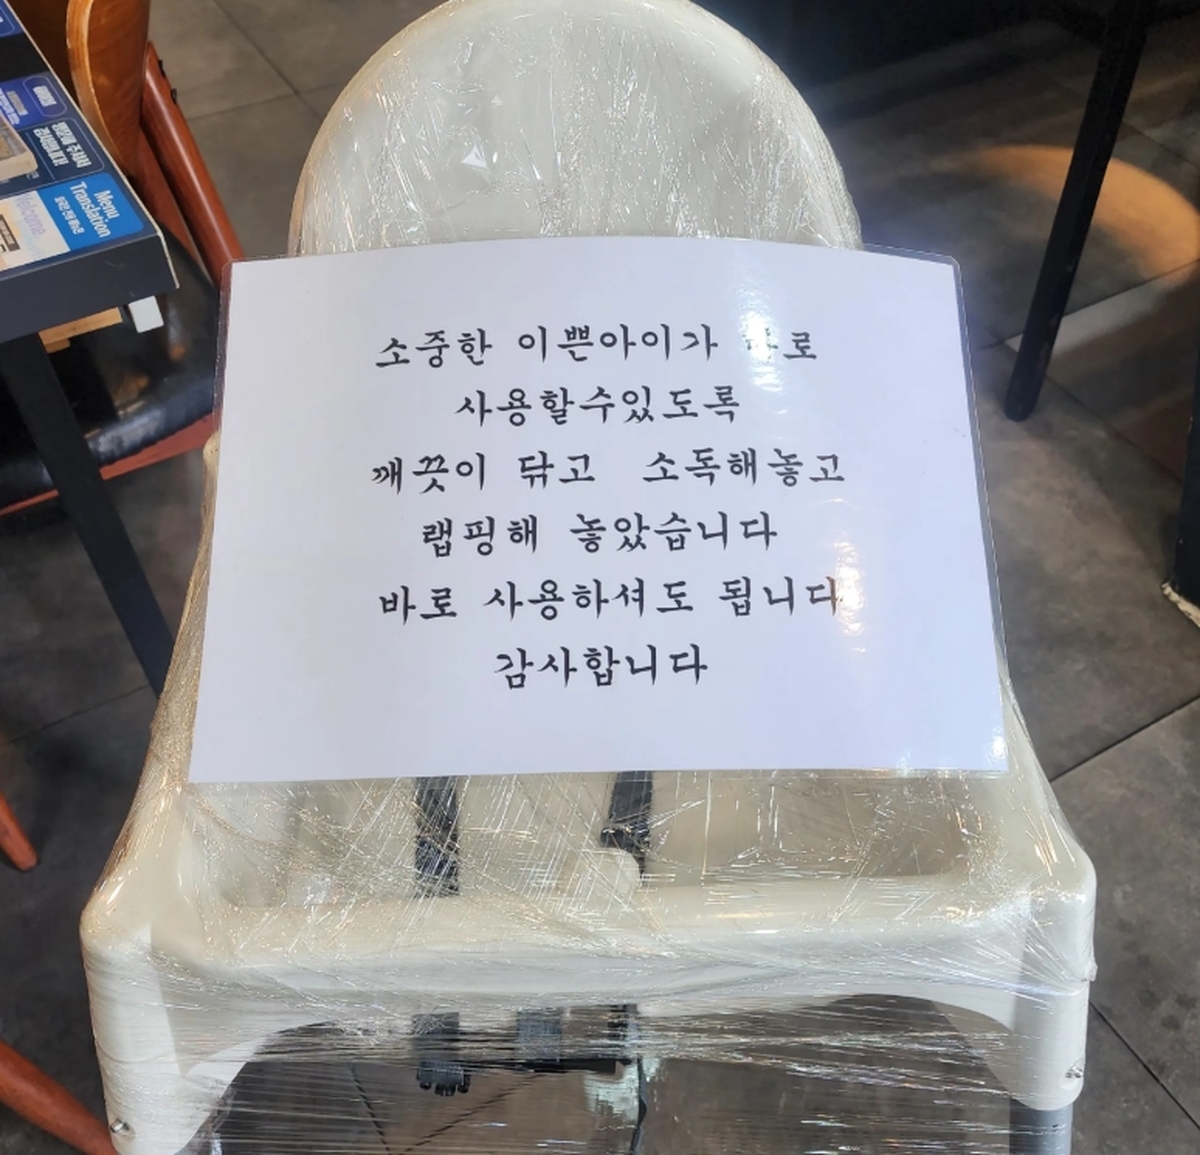 소중한 이쁜아이가 바로
사용할수있도록
깨끗이 닦고 소독해놓고
랩핑해 놓았습니다
바로 사용하셔도 됩니다
감사합니다
Menu
Translation